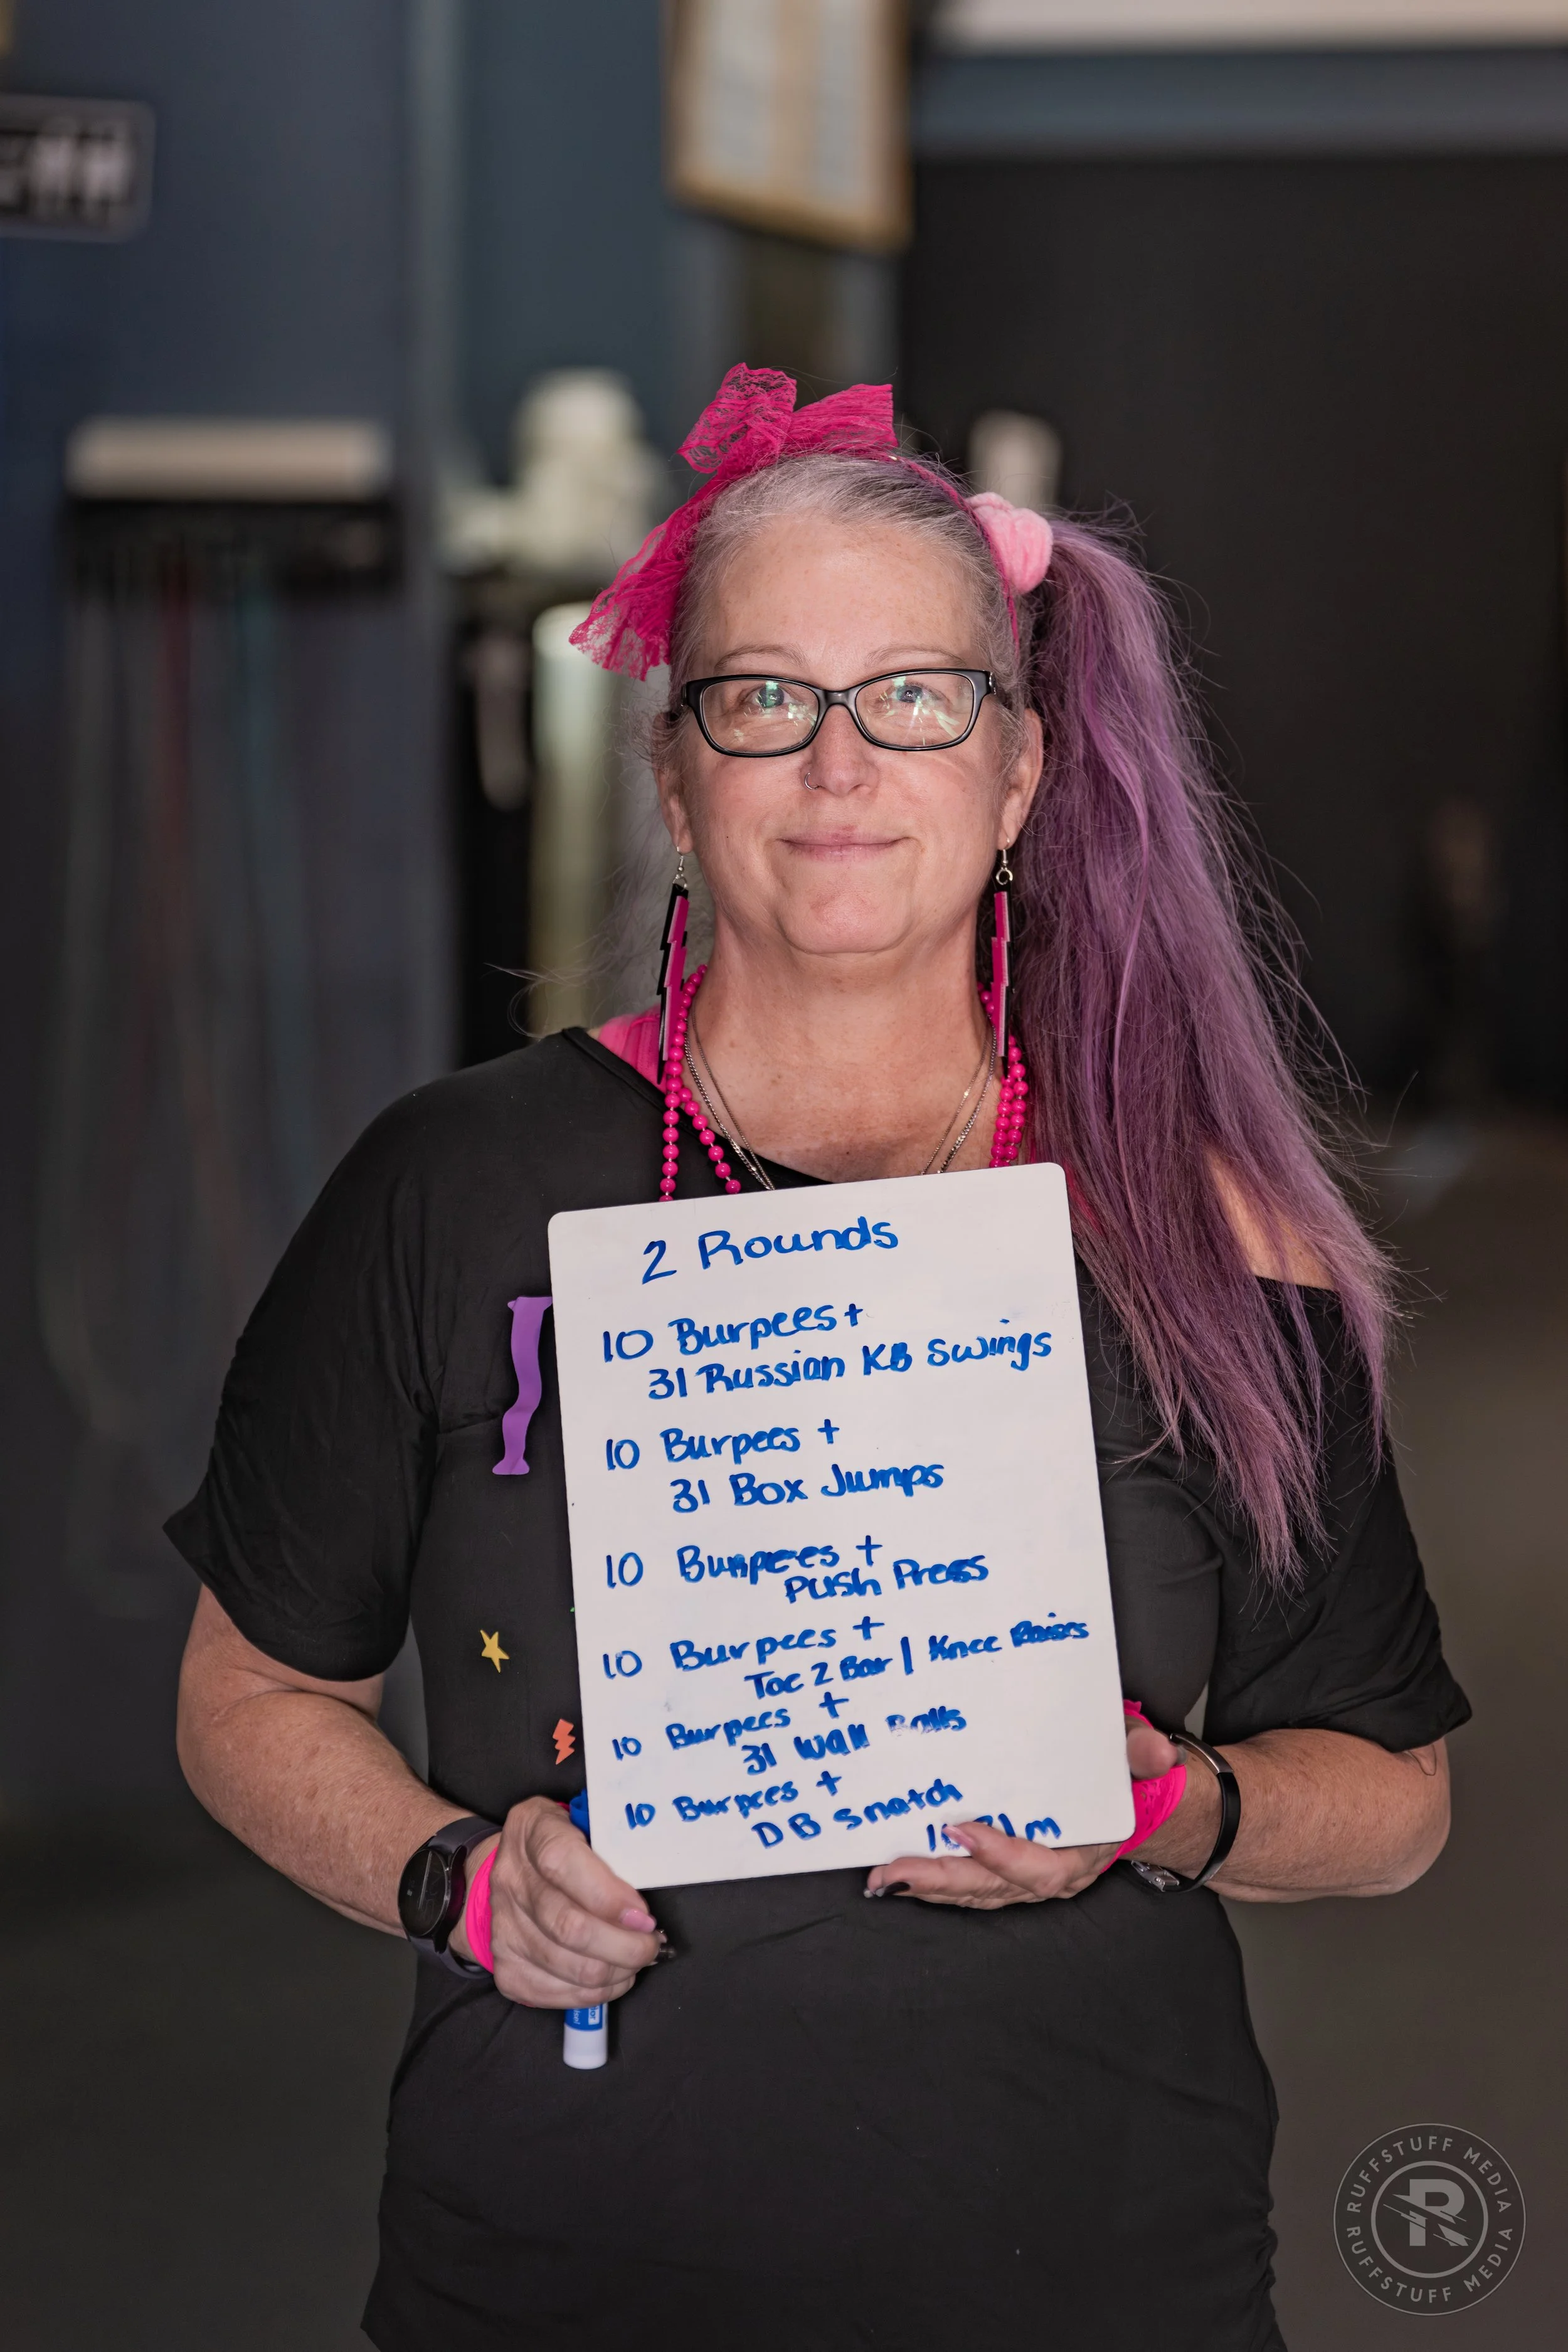 2 Rounds
10 Burpees +
31 Russian KB Swings
10 Burpees +
31 Box Jumps
10 Burpees +
Push Press
10 Burpees +
Toe 2 Bar | Knee Raises
10 Burpees +
31 Wall Balls
10 Burpees +
DB Snatch
RUFFSTUFF MEDIA
RUFFSTUFF MEDIA
R